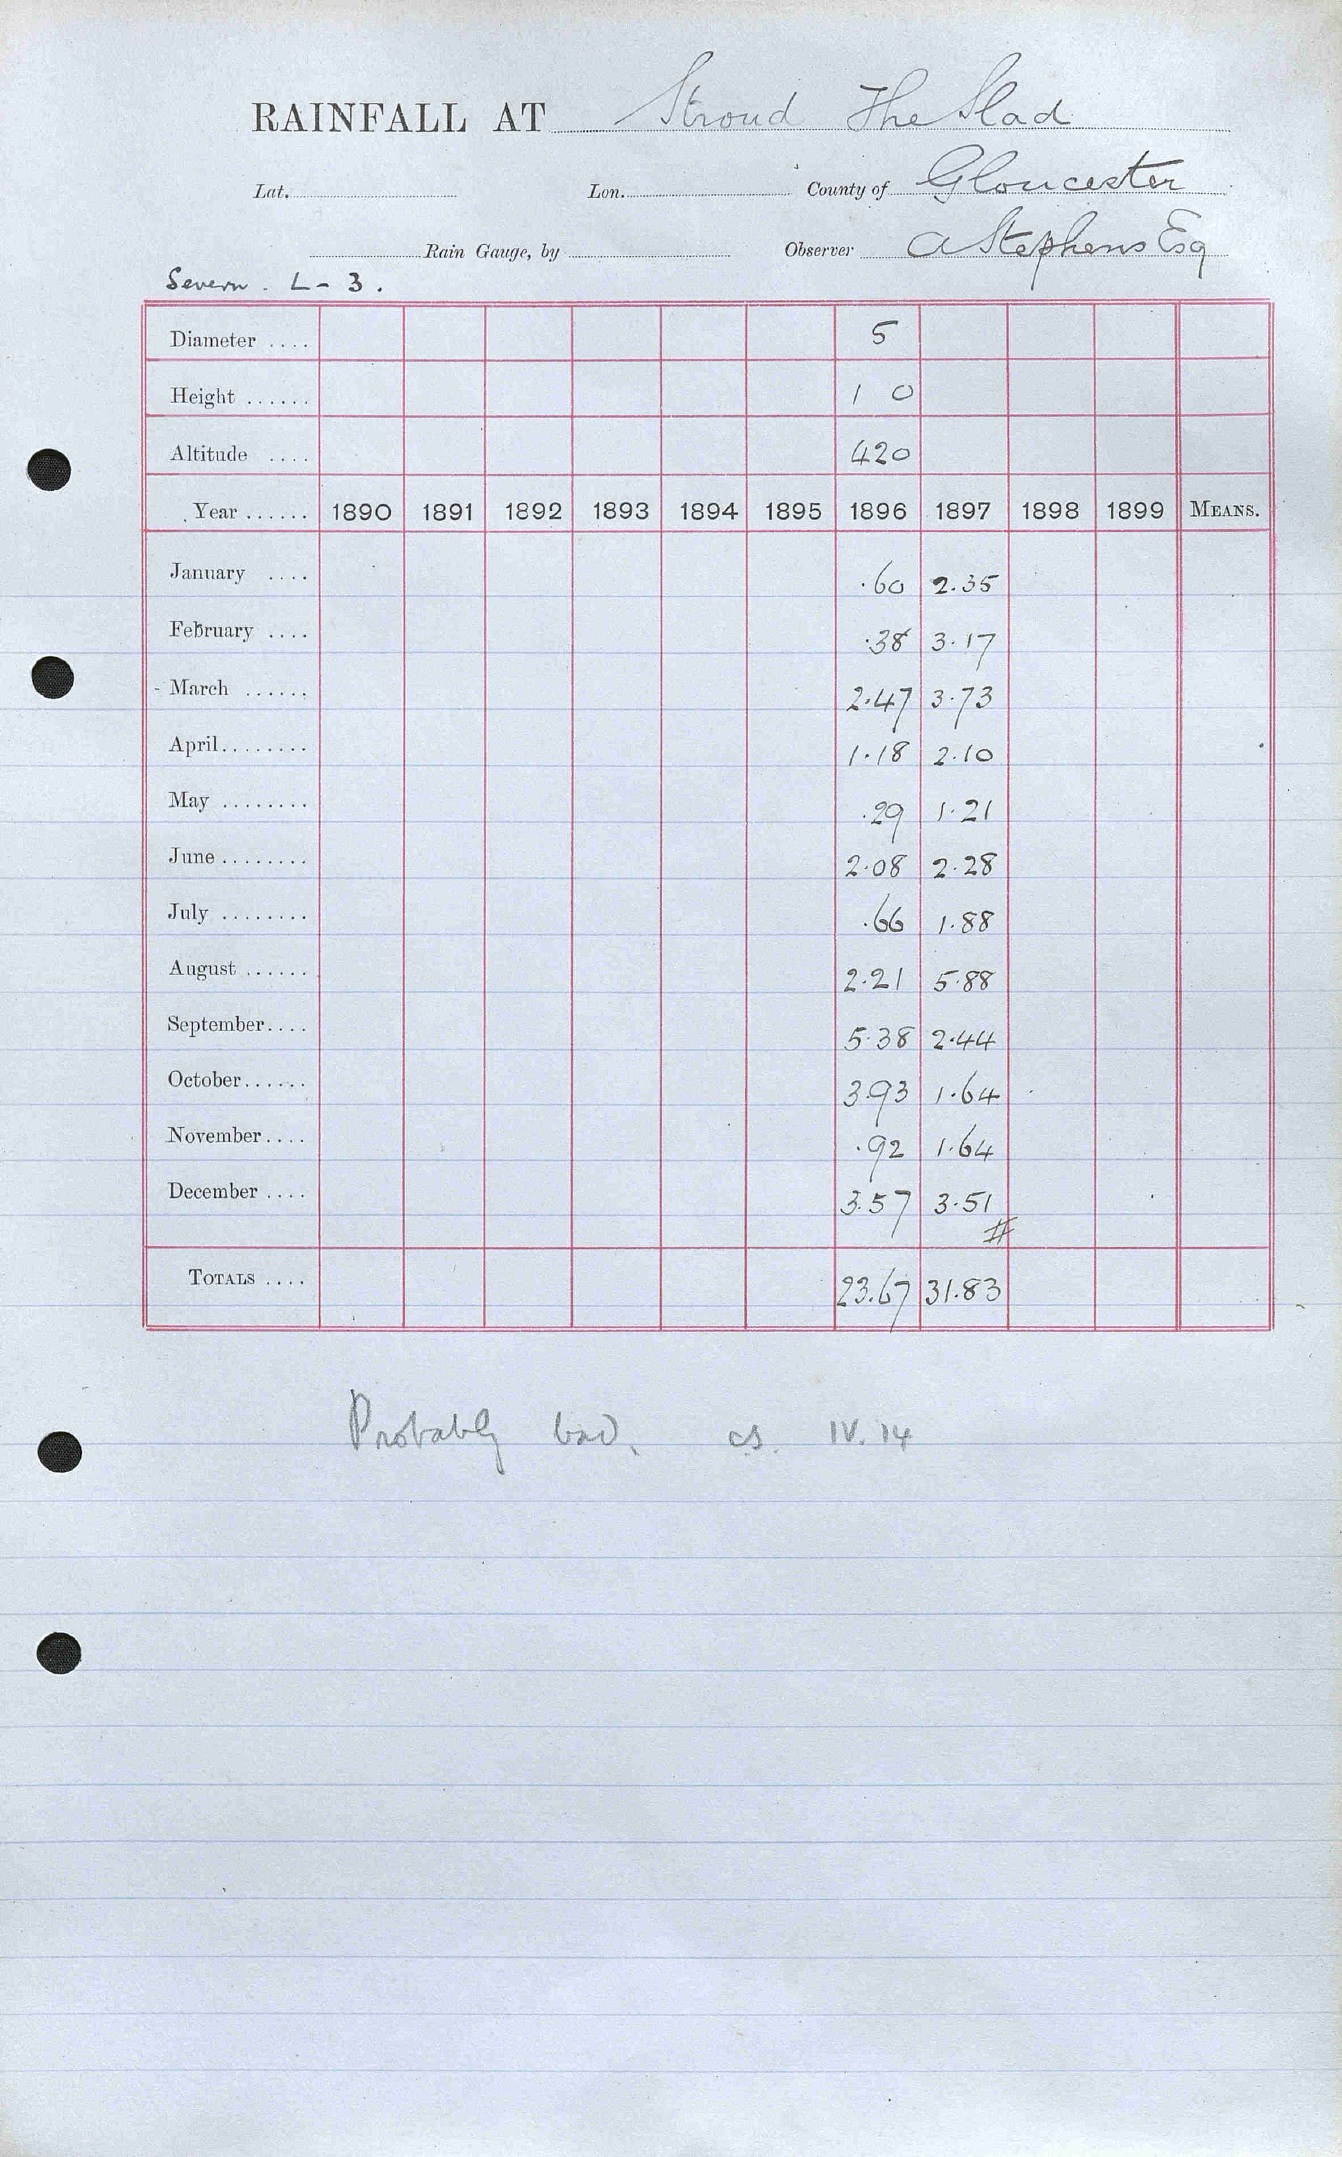 RAINFALL AT Stroud The Slad
Lat. Lon. County of Gloucester
Rain Gauge, by Observer A Stephens Esq
Severn. L - 3.
Diameter .... 5
Height ...... 1 0
Altitude .... 420
Year ...... 1890 1891 1892 1893 1894 1895 1896 1897 1898 1899 MEANS.
January .... .60 2.35
February .... .38 3.17
March ...... 2.47 3.73
April........ 1.18 2.10
May ........ .29 1.21
June ........ 2.08 2.28
July ........ .66 1.88
August ...... 2.21 5.88
September.... 5.38 2.44
October...... 3.93 1.64
November.... .92 1.64
December .... 3.57 3.51
#
TOTALS .... 23.67 31.83
Probably bad. cs. IV. 14